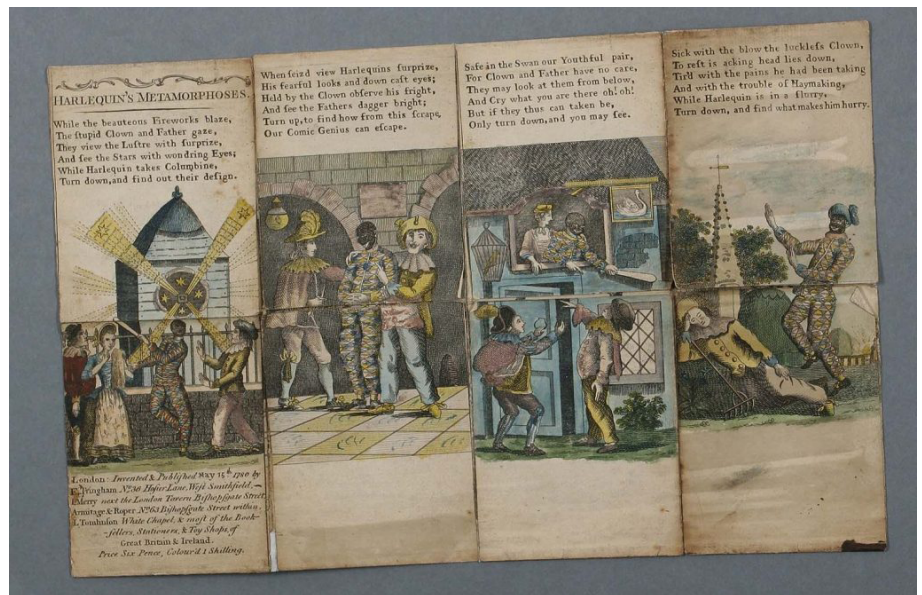 HARLEQUIN'S METAMORPHOSES.
While the beauteous Fireworks blaze,
The ſtupid Clown and Father gaze,
They view the Luſtre with ſurprize,
And ſee the Stars with wondring Eyes;
While Harlequin takes Columbine,
Turn down, and find out their deſign.
London: Invented & Publiſhed May 15th by
Tringham No. 36 Hoſier Lane, Weſt Smithfield;
Merry next the London Tavern Biſhopſgate Street
Armitage & Roper No. 63 Biſhopſgate Street within.
Tomlinſon White Chapel, & moſt of the Book-
-ſellers, Stationers, & Toy Shops, of
Great Britain & Ireland.
Price Six Pence, Colour'd 1 Shilling.
When ſeizd view Harlequins ſurprize,
His fearful looks and down caſt eyes;
Held by the Clown obſerve his fright,
And ſee the Fathers dagger bright;
Turn up, to find how from this ſcrape,
Our Comic Genius can eſcape.
Safe in the Swan our Youthful pair,
For Clown and Father have no care,
They may look at them from below,
And Cry what you are there oh! oh!
But if they thus can taken be,
Only turn down, and you may ſee.
Sick with the blow the luckleſs Clown,
To reſt is acking head lies down,
Tir'd with the pains he had been taking
And with the trouble of Haymaking,
While Harlequin is in a flurry,
Turn down, and find what makes him hurry.